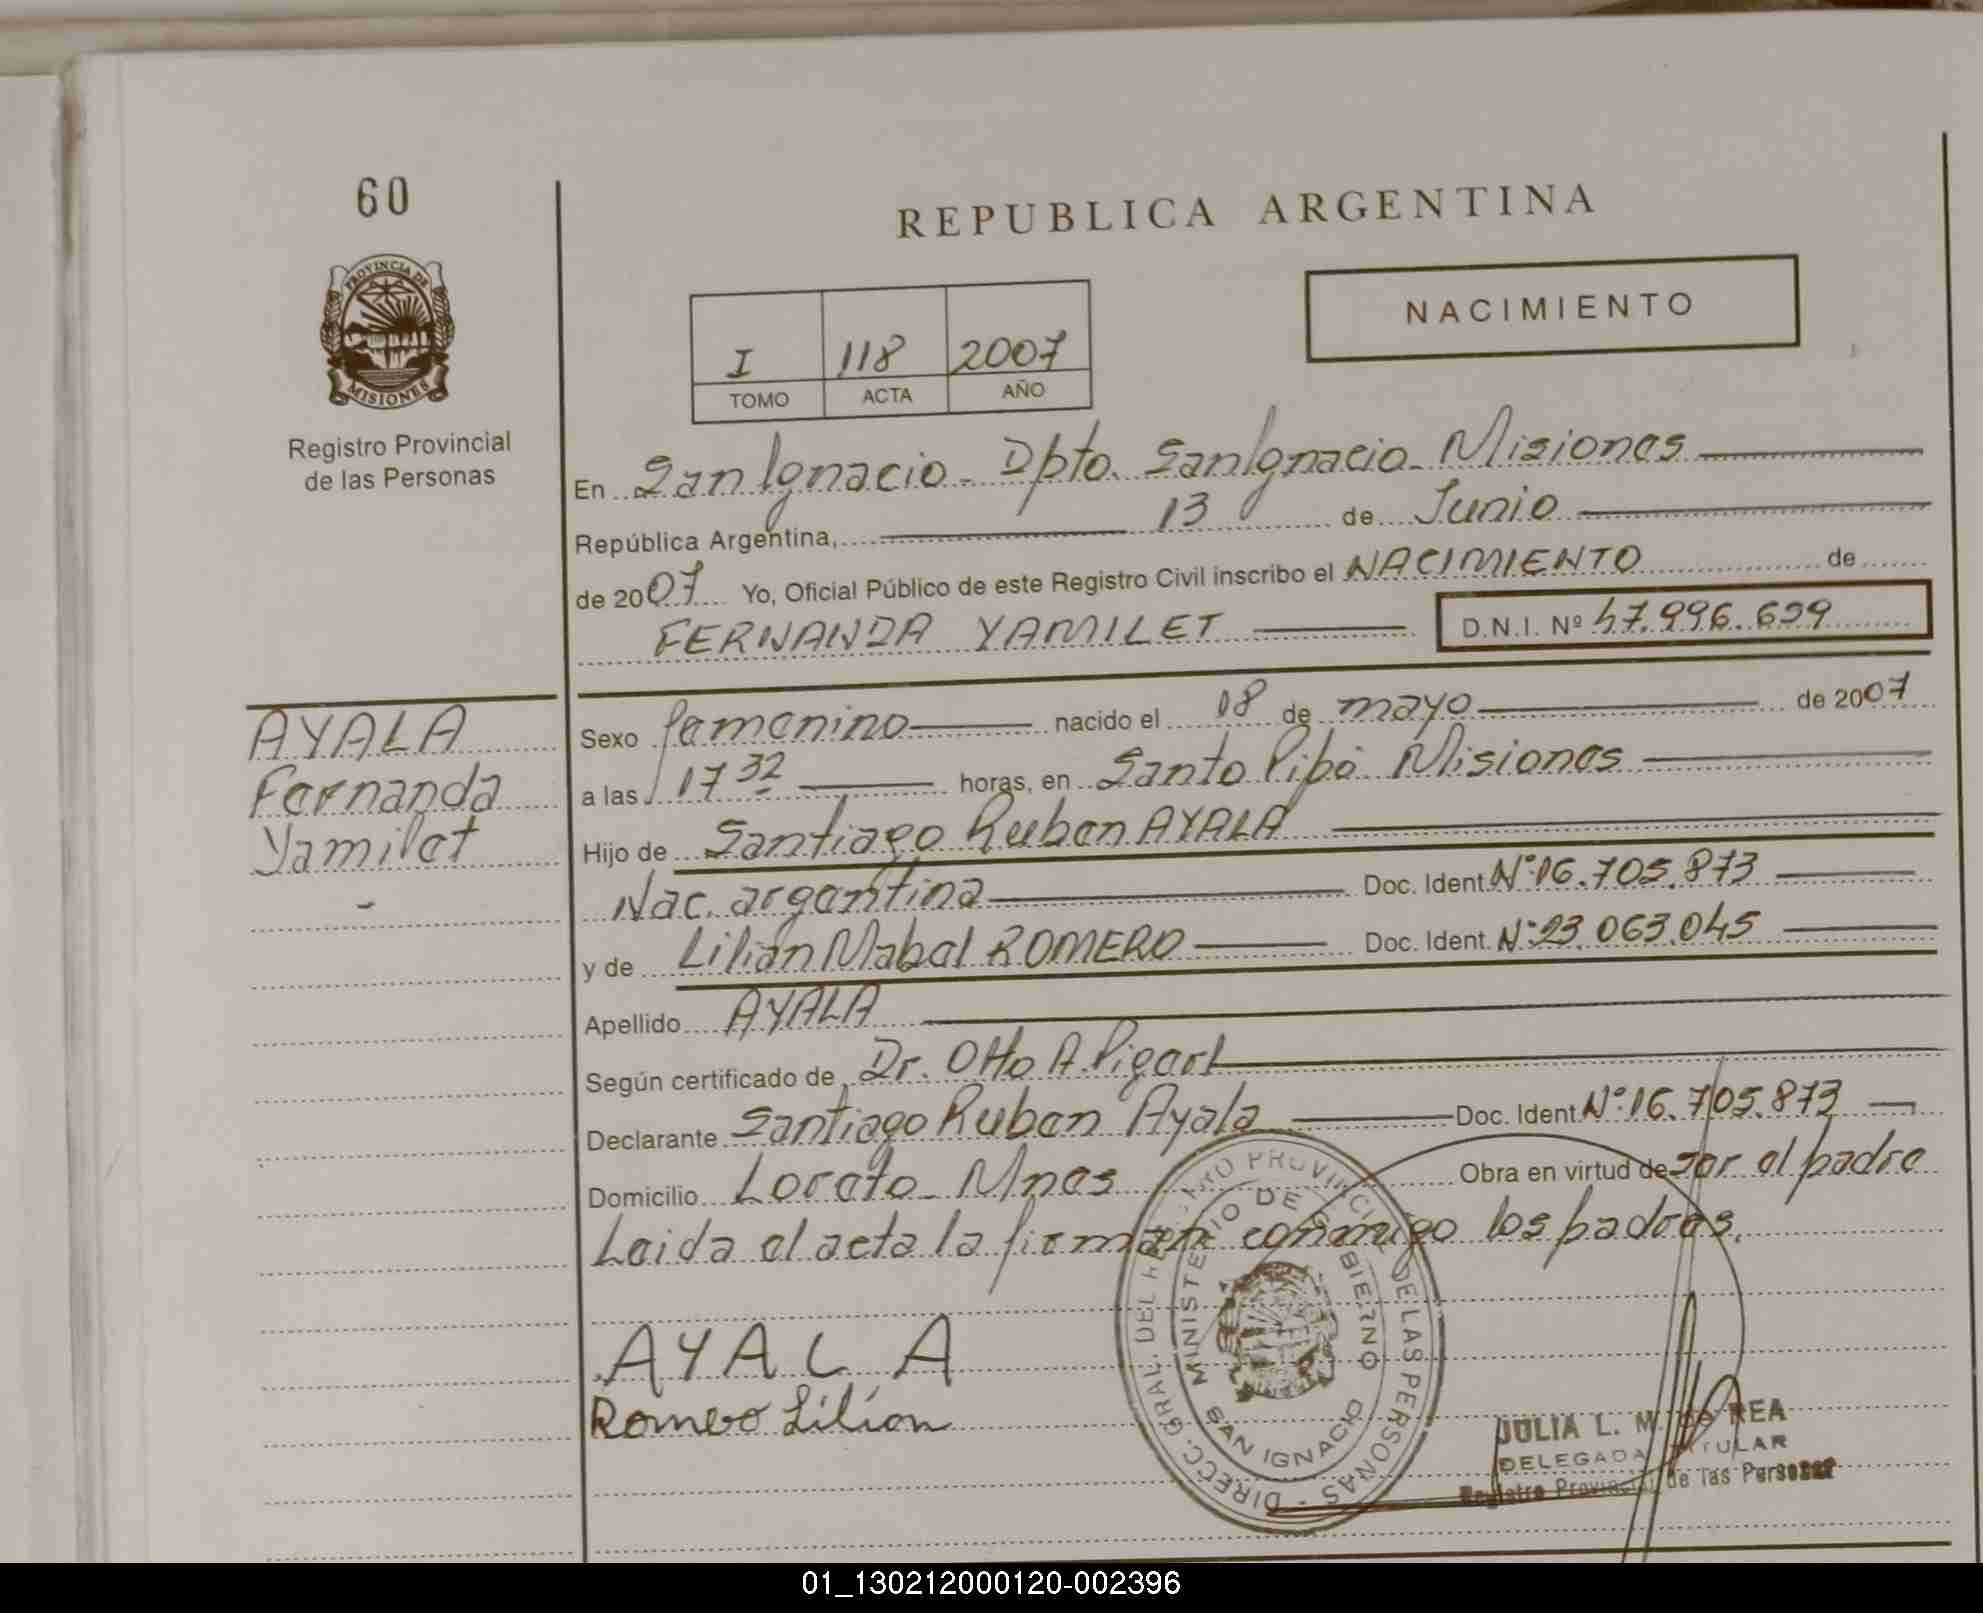 60
PROVINCIA DE
MISIONES
Registro Provincial
de las Personas
REPUBLICA ARGENTINA
NACIMIENTO
I 118 2007
TOMO ACTA AÑO
En San Ignacio - Dpto. San Ignacio - Misiones
República Argentina, 13 de Junio
de 2007 Yo, Oficial Público de este Registro Civil inscribo el NACIMIENTO de
FERNANDA YAMILET D.N.I. Nº 47.996.659
AYALA
Fernanda
Yamilet
-
Sexo femenino nacido el 08 de mayo de 2007
a las 17 32 horas, en Santo Pipó Misiones
Hijo de Santiago Ruben AYALA
Nac. argentina Doc. Ident. Nº 16.705.873
y de Lilian Mabel ROMERO Doc. Ident. Nº 23.063.045
Apellido AYALA
Según certificado de Dr. Otto A.
Declarante Santiago Ruben Ayala Doc. Ident. Nº 16.705.873
Domicilio Loreto - Mnes Obra en virtud de ser el padre
Leida el acta la firman conmigo los padres.
AYALA
Romero Lilian
DIRECC. GRAL. DEL REGISTRO PROVINCIAL DE LAS PERSONAS -
MINISTERIO DE GOBIERNO
SAN IGNACIO
JULIA L. M. de REA
DELEGADA TITULAR
Registro Provincial de las Personas
01_130212000120-002396